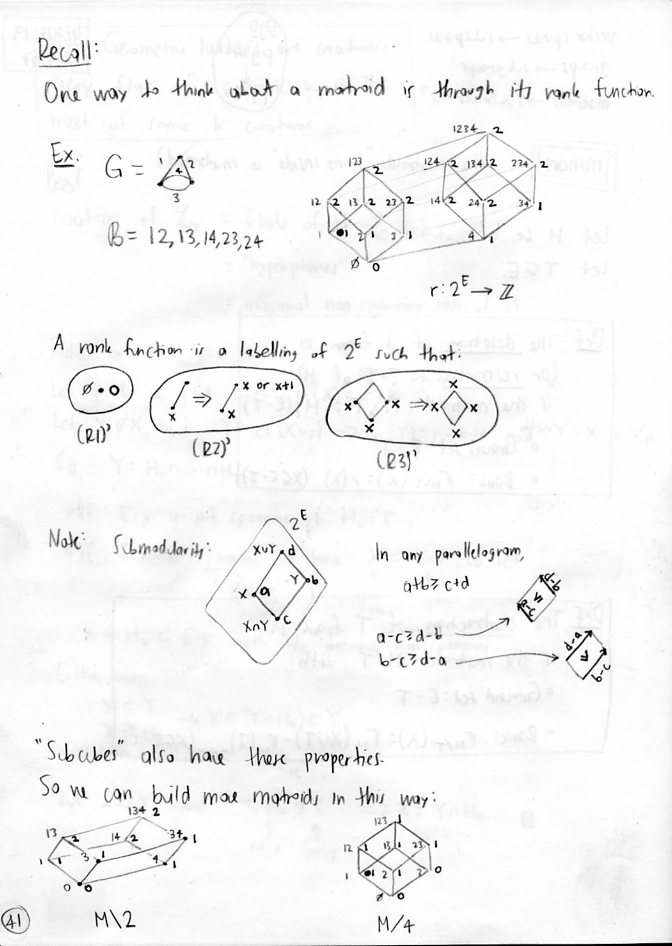 Recall:
One way to think about a matroid is through its rank function.
Ex. G = 1 4 2
3
B = 12, 13, 14, 23, 24
1234 2
123 2 124 2 134 2 234 2
12 2 13 2 23 2 14 2 24 2 34 1
1 1 2 1 3 1 4 1
∅ 0
r : 2^E → ℤ
A rank function is a labelling of 2^E such that:
∅ • 0
x ⇒ x x or x+1
x x x ⇒ x x x x
(R1)' (R2)' (R3)'
Note: Submodularity:
2^E
X∪Y d
X a Y b
X∩Y c
In any parallelogram,
a+b ≥ c+d
a-c ≥ d-b
b-c ≥ d-a
a-c ≤ d-b
d-a ≤ b-c
"Subcubes" also have these properties.
So we can build more matroids in this way:
134 2
13 2 14 2 34 1
1 1 3 1 4 1
0 0
M\2
123 1
12 1 13 1 23 1
1 1 2 1 3 0
∅ 0
M/4
41